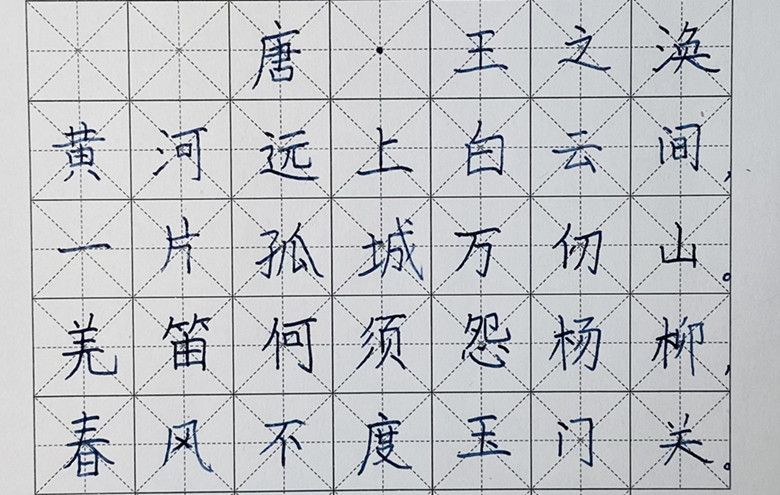 唐·王之涣
黄河远上白云间,
一片孤城万仞山。
羌笛何须怨杨柳,
春风不度玉门关。